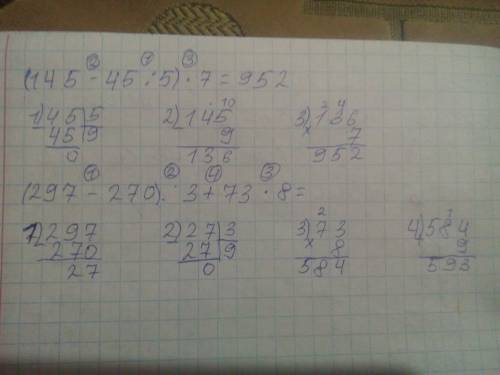 ② ① ③
(145 - 45 : 5) · 7 = 952
1) 45 | 5 2) 145 3) 136
45 | 9 9 × 7
0 136 952
① ② ④ ③
(297 - 270) : 3 + 73 · 8 =
1) 297 2) 27 | 3 3) 73 4) 584
270 27 | 9 × 8 9
27 0 584 593